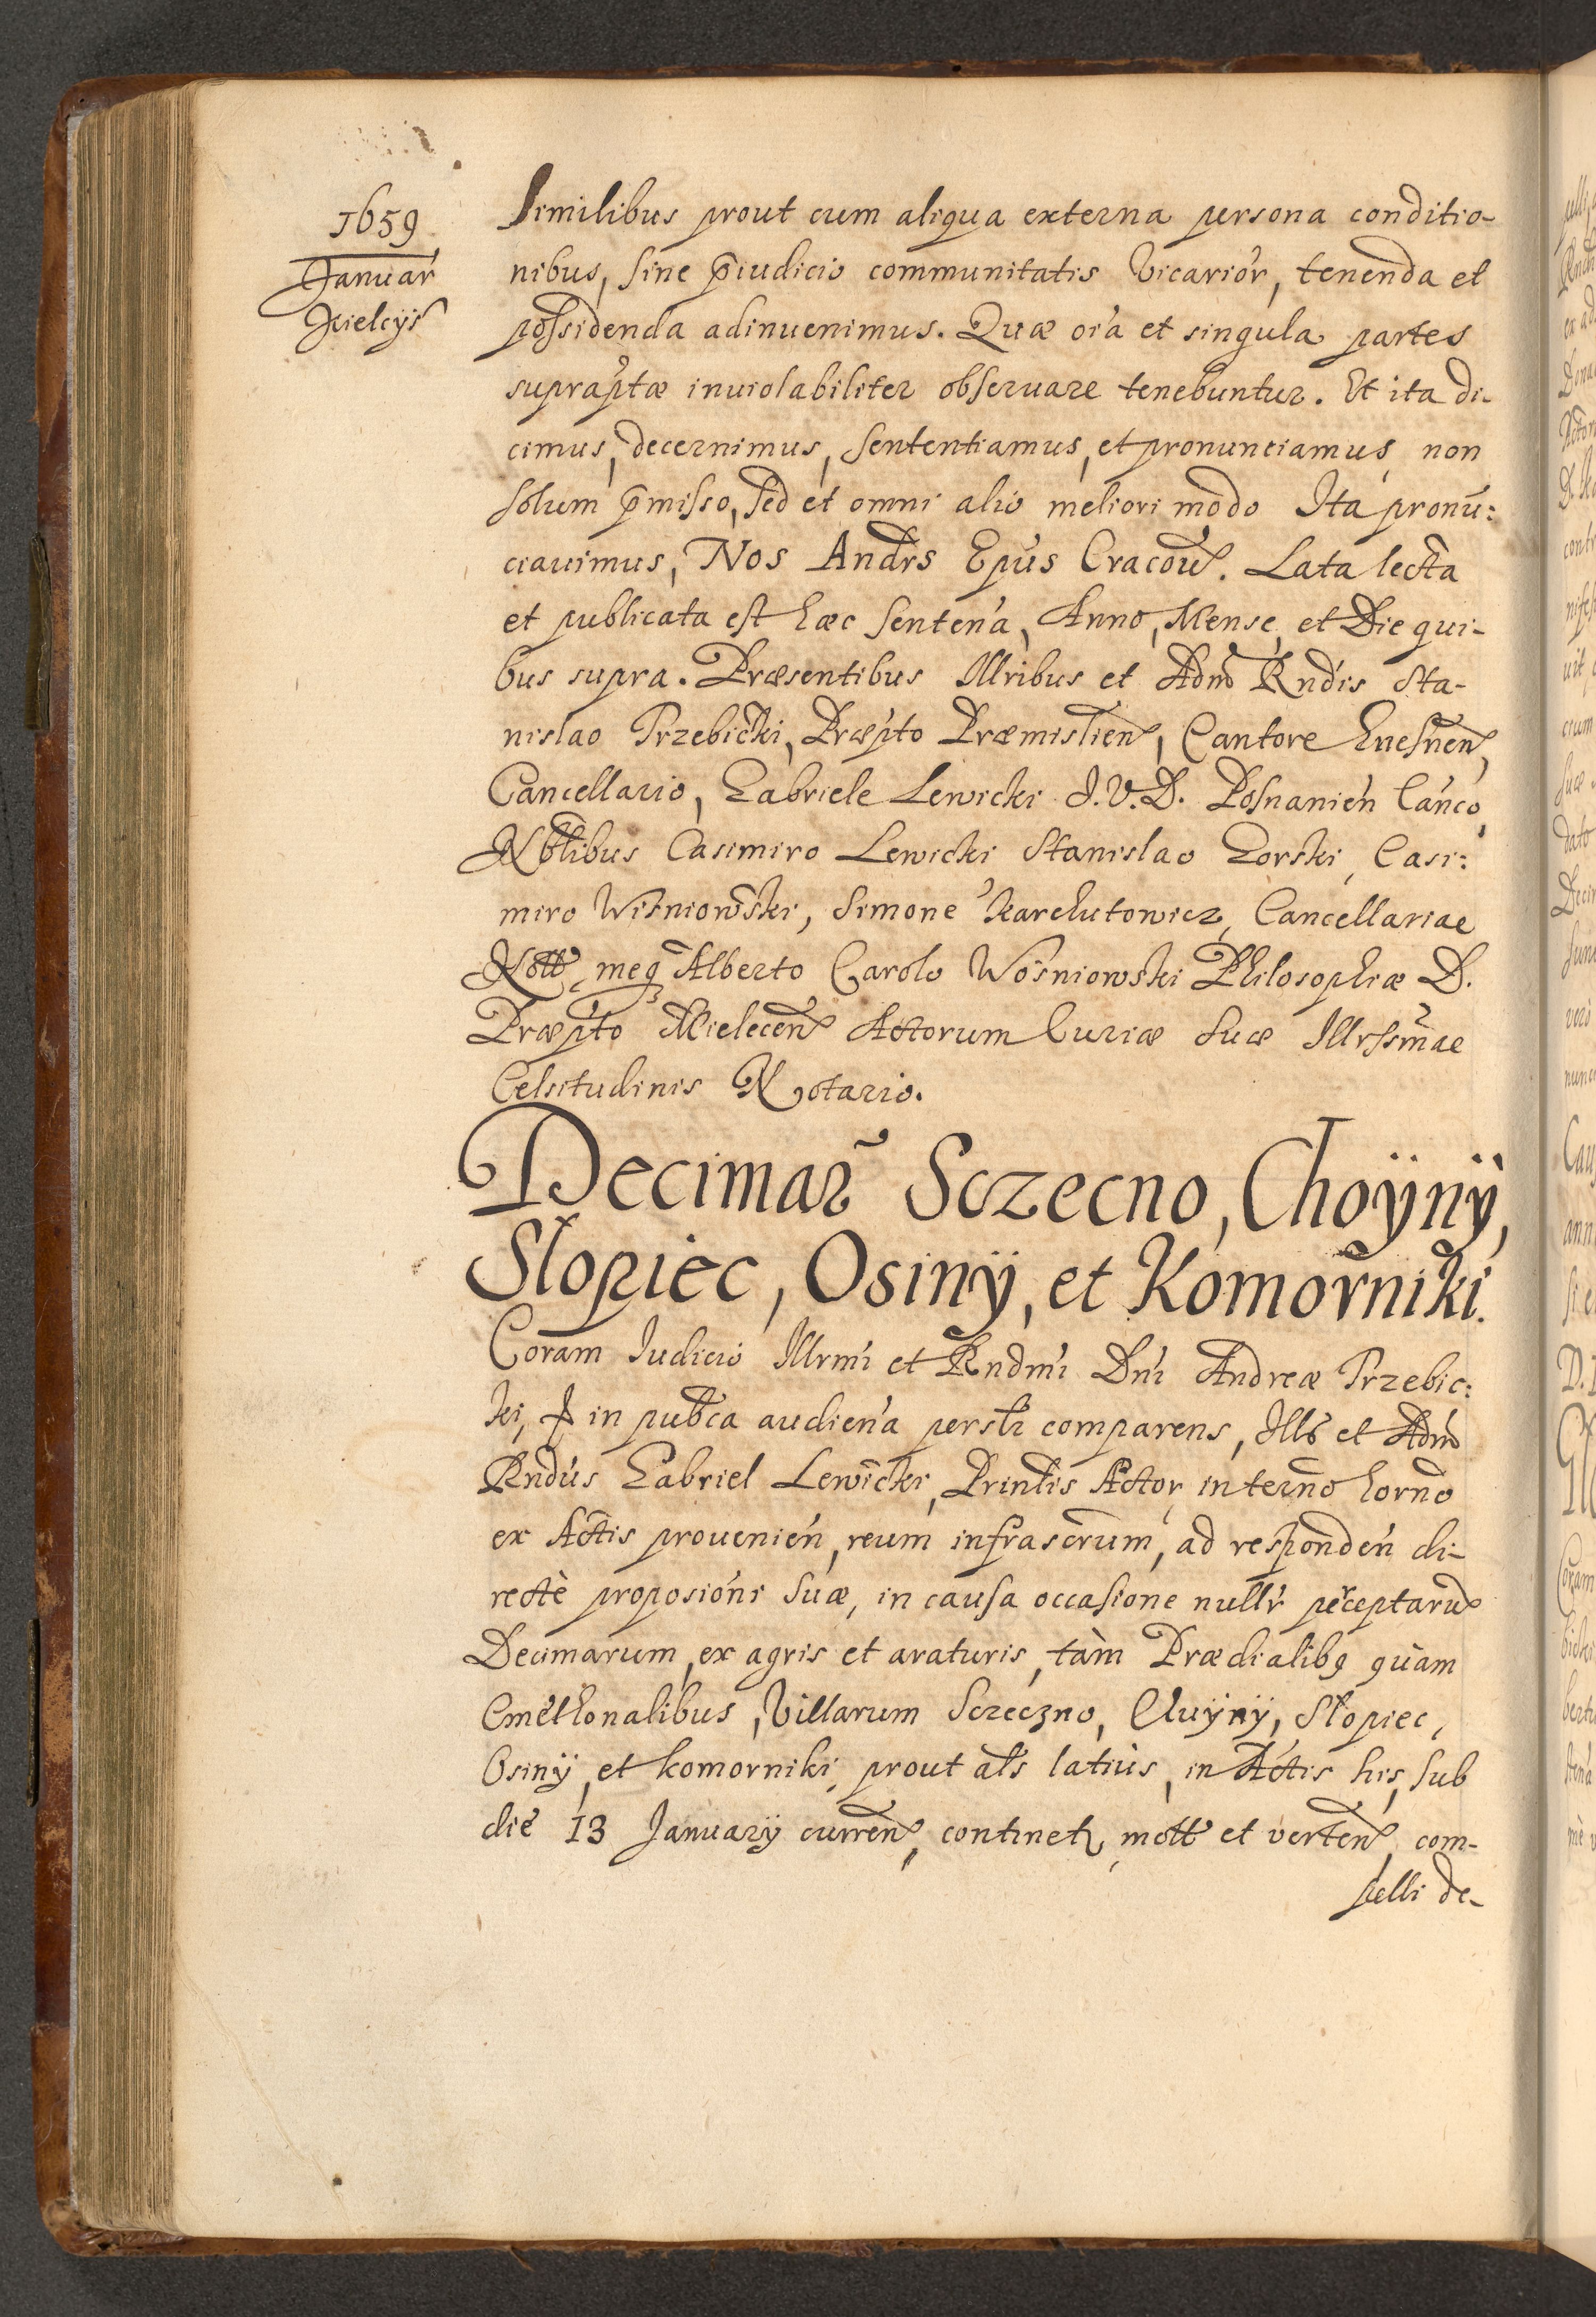 1659
Januar̃
Kielcÿs
Similibus prout cum aliqua externa persona conditio-
nibus, sine p̃iudicio communitatis Vicariõr, tenenda et
possidenda adinuenimus. Quæ oīa et singula partes
suprap̃tæ inuiolabiliter obseruare tenebuntur. Et ita di-
cimus, decernimus, sententiamus, et pronunciamus, non
solum p̃misso, sed et omni alio meliori modo Ita pronũ:
ciauimus, Nos Andr̃s Ep̃us Cracou̅. Lata lecta
et publicata est hæc senten̅a, Anno, Mense, et Die qui-
bus supra. Præsentibus Illribus et Adm̃ Rnd̃is Sta-
nislao Trzebicki, Præp̃to Præmislien̅, Cantore Gnesnen̅,
Cancellario, Gabriele Lewicki J.V.D. Posnanien̅ Can̅co,
Nob̃libus Casimiro Lewicki Stanislao Gorski, Casi:
miro Wisniowski, Simone Karchutowicz, Cancellariae
Nott̃, meq̃ Alberto Carolo Wosniowski Philosophiæ D.
Præp̃to Mielecen̅ Actorum Curiæ Suæ Illrssm̃ae
Celsitudinis Notario.
Decimar̃ Sczecno, Choÿnÿ,
Słopiec, Osinÿ, et Komorniki.
Coram Iudicio Illrmi̅ et Rndmi̅ Dn̅i Andreæ Trzebic:
ki, in pub̃ca audien̅a persl̃r comparens, Ill̃s et Adm̃
Rnd̃us Gabriel Lewicki, Prin̅lis Actor, in term̃o horn̅o
ex Actis prouenien̅, reum infrascr̃um, ad responden̅ di-
rectè proposiõni suæ, in causa occasione nulli̅r perceptaru̅
Decimarum, ex agris et araturis, tàm Prædialibq quàm
Cmethonalibus, Villarum Sczeczno, Chuÿnÿ, Słopiec,
Osinÿ, et komorniki, prout al̃s latiùs, in Actis his, sub
die 13 Januarÿ curren̅, continetr, mott̃ et verten̅, com-
pelli de-